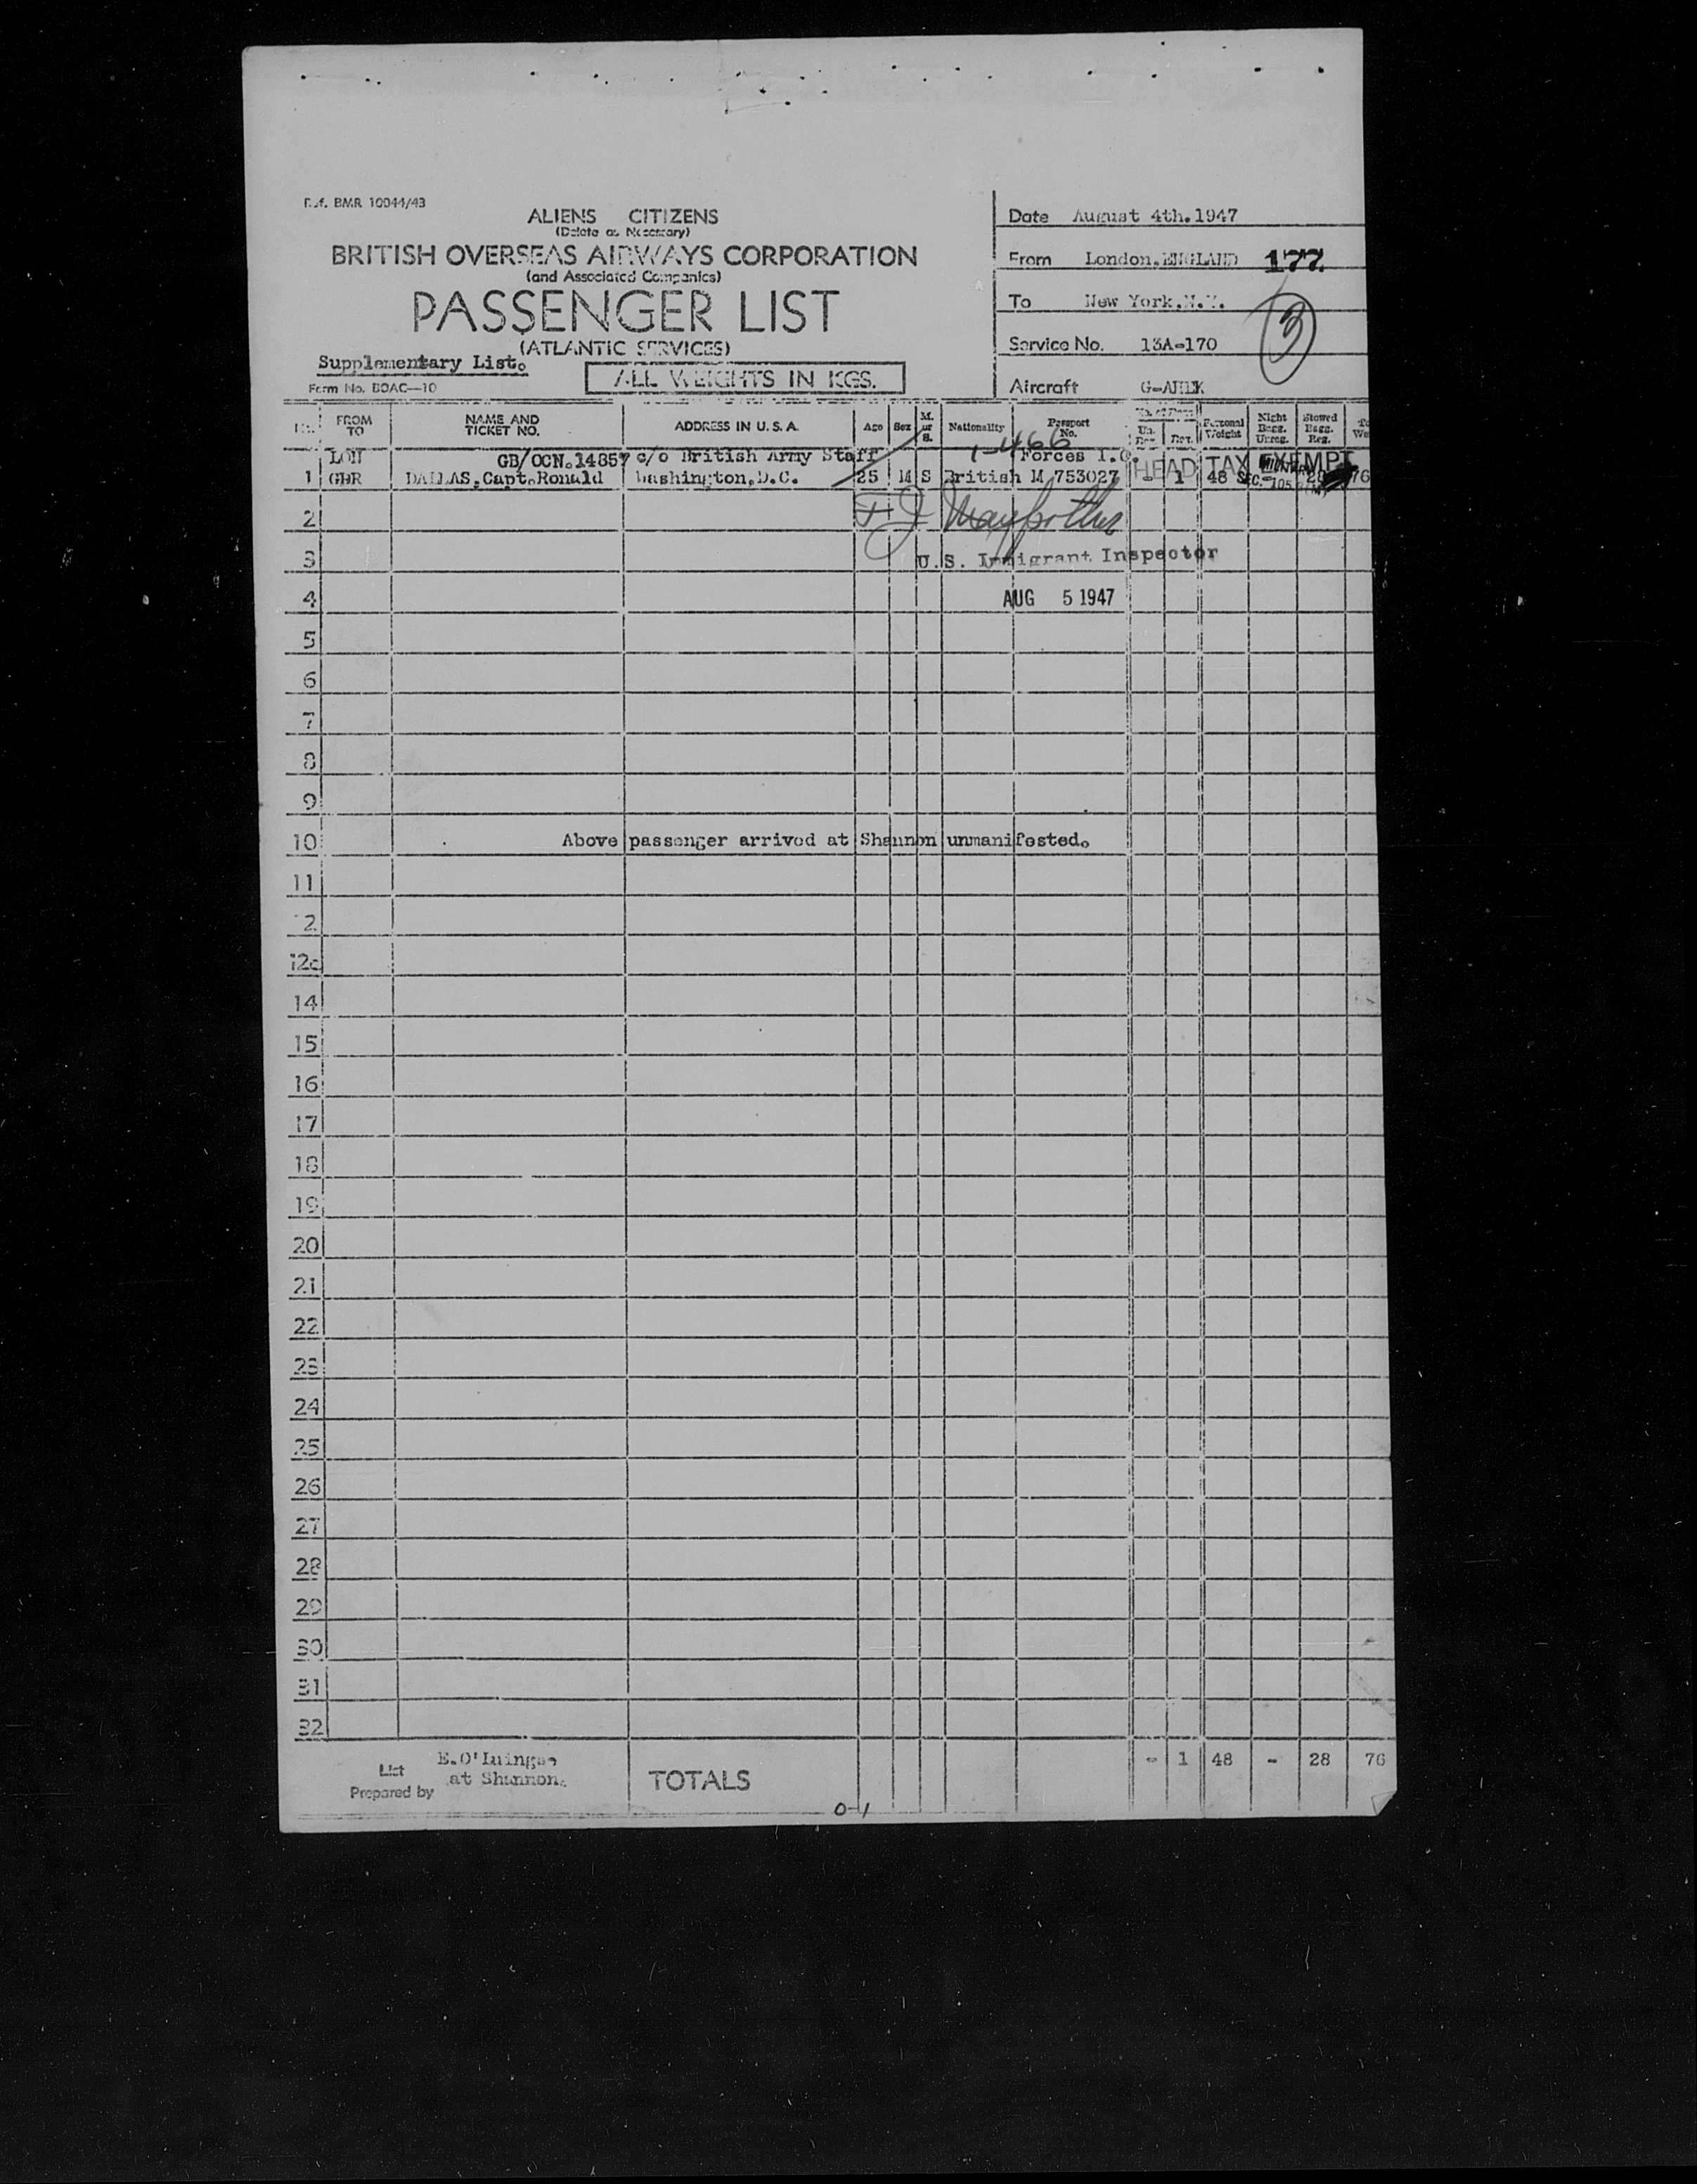 Ref. BMR 10044/43
ALIENS CITIZENS
(Delete as Necessary)
BRITISH OVERSEAS AIRWAYS CORPORATION
(and Associated Companies)
PASSENGER LIST
(ATLANTIC SERVICES)
Supplementary List.
Form No. BOAC—10
ALL WEIGHTS IN KGS.
Date August 4th.1947
From London.ENGLAND 177
To New York.N.Y.
3
Service No. 13A-170
Aircraft
FROM TO NAME AND TICKET NO. ADDRESS IN U. S. A. Age Sex M. or S. Nationality Passport No. Personal Weight Night Bagg. Unreg. Stowed Bagg. Reg.
1-466
LON GB/OCN.14857 c/o British Army Staff Forces I.C. HEAD TAX EXEMPT
1 DALLAS.Capt.Ronald Washington,D.C. 25 M S British M 753027 - 1 48 - 28 76
2
U.S. Immigrant Inspector
3
4 AUG 5 1947
5
6
7
8
9
10 Above passenger arrived at Shannon unmanifested.
11
12
12c
14
15
16
17
18
19
20
21
22
23
24
25
26
27
28
29
30
31
32
List Prepared by at Shannon. TOTALS - 1 48 - 28 76
0-1